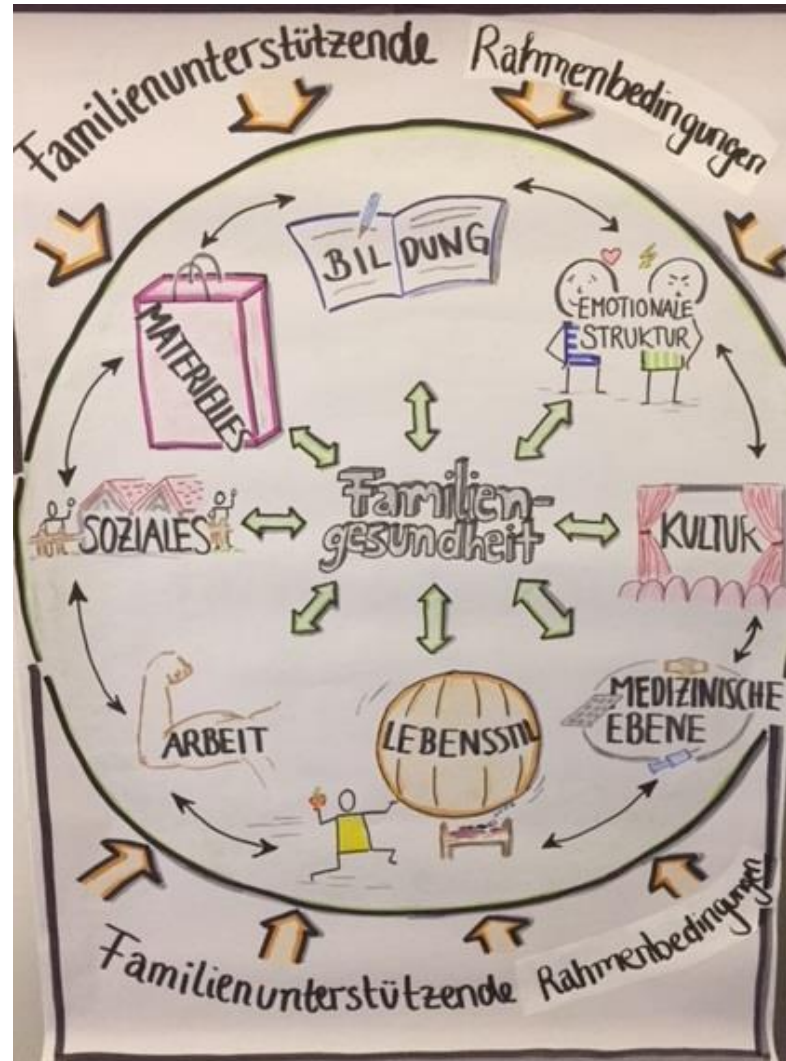 Familienunterstützende Rahmenbedingungen
BILDUNG
EMOTIONALE
STRUKTUR
MATERIELLES
Familien-
gesundheit
SOZIALES
KULTUR
ARBEIT
LEBENSSTIL
MEDIZINISCHE
EBENE
Familienunterstützende Rahmenbedingungen